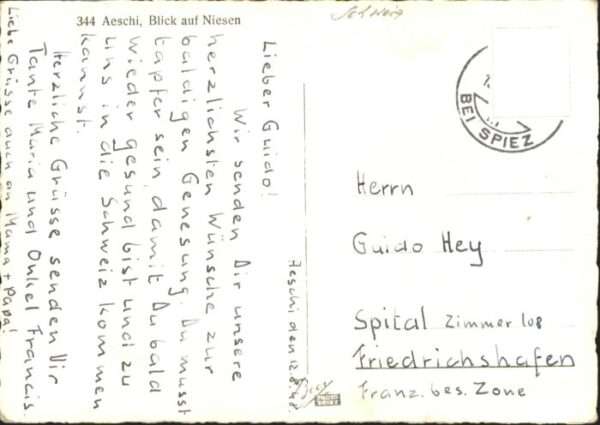 344 Aeschi, Blick auf Niesen
Schweiz
BEI SPIEZ
Aeschi den 12.8.48.
Lieber Guido!
Wir senden Dir unsere
herzlichsten Wünsche zur
baldigen Genesung. Du musst
tapfer sein, damit Du bald
wieder gesund bist und zu
uns in die Schweiz kommen
kannst.
Herzliche Grüsse senden Dir
Tante Maria und Onkel Francis.
Liebe Grüsse auch an Mama + Papa!
Herrn
Guido Hey
Spital Zimmer 108
Friedrichshafen
Franz. bes. Zone